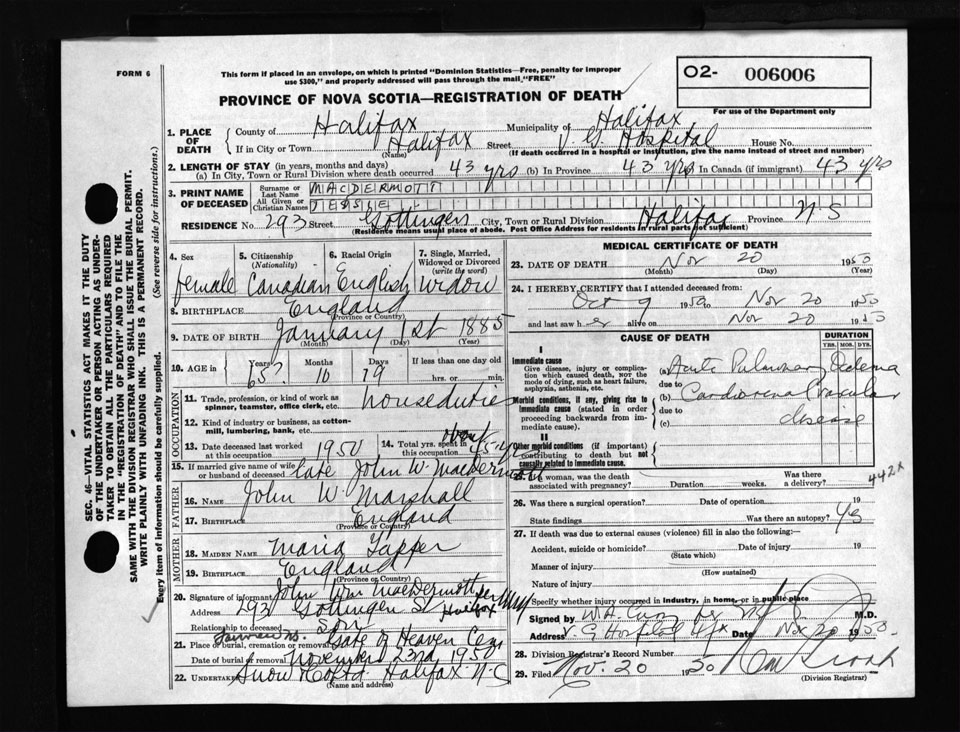 FORM 6
This form if placed in an envelope, on which is printed "Dominion Statistics—Free, penalty for improper
use $300," and properly addressed will pass through the mail, "FREE"
O2- 006006
For use of the Department only
PROVINCE OF NOVA SCOTIA—REGISTRATION OF DEATH
1. PLACE OF DEATH
County of Halifax Municipality of Halifax
If in City or Town Halifax (Name) Street V G Hospital House No.
(If death occurred in a hospital or institution, give the name instead of street and number)
2. LENGTH OF STAY (in years, months and days)
(a) In City, Town or Rural Division where death occurred 43 yrs (b) In Province 43 yrs In Canada (if immigrant) 43 yrs
3. PRINT NAME OF DECEASED
Surname or Last Name MACDERMOTT
All Given or Christian Names JESSIE
RESIDENCE No. 293 Street Gottingen City, Town or Rural Division Halifax Province N S
(Residence means usual place of abode. Post Office Address for residents in rural parts not sufficient)
4. Sex female
5. Citizenship (Nationality) Canadian
6. Racial Origin English
7. Single, Married, Widowed or Divorced (write the word) Widow
8. BIRTHPLACE England
(Province or Country)
9. DATE OF BIRTH January 1st 1885
(Month) (Day) (Year)
10. AGE in Years 65 Months 10 Days 19 If less than one day old
hrs. or min.
OCCUPATION
11. Trade, profession, or kind of work as spinner, teamster, office clerk, etc. houseduties
12. Kind of industry or business, as cotton-mill, lumbering, bank, etc.
13. Date deceased last worked at this occupation 1950
14. Total yrs. spent in this occupation about 45
15. If married give name of wife or husband of deceased late John W. MacDermott
FATHER
16. Name John W. Marshall
17. Birthplace England
(Province or Country)
MOTHER
18. Maiden Name Maria Tapper
19. Birthplace England
(Province or Country)
20. Signature of informant John Wm MacDermott per
Address 293 Gottingen St Halifax
Relationship to deceased Son
21. Place of burial, cremation or removal Gate of Heaven Cem
Date of burial or removal November 23rd 1950
22. Undertaker Snow & Co Ltd. Halifax N-S
(Name and address)
MEDICAL CERTIFICATE OF DEATH
23. DATE OF DEATH Nov 20 1950
(Month) (Day) (Year)
24. I HEREBY CERTIFY that I attended deceased from:
Oct 9 1950 to Nov 20 1950
and last saw her alive on Nov 20 1950
CAUSE OF DEATH
DURATION
YRS. MOS. DYS.
I
Immediate cause
Give disease, injury or complication which caused death, not the mode of dying, such as heart failure, asphyxia, asthenia, etc.
(a) Acute Pulmonary Oedema
due to
Morbid conditions, if any, giving rise to immediate cause (stated in order proceeding backwards from immediate cause).
(b) Cardiorenal Vascular
due to
(c) disease
II
Other morbid conditions (if important) contributing to death but not causally related to immediate cause.
25. If a woman, was the death associated with pregnancy? Duration weeks. Was there a delivery?
442x
26. Was there a surgical operation? Date of operation 19
State findings Was there an autopsy? Yes
27. If death was due to external causes (violence) fill in also the following:
Accident, suicide or homicide? Date of injury 19
(State which)
Manner of injury
(How sustained)
Nature of injury
Specify whether injury occurred in industry, in home, or in public place
Signed by M.D.
Address V. G Hospital Hfx Date Nov 20 1950.
28. Division Registrar's Record Number
29. Filed Nov. 20 1950
(Division Registrar)
SEC. 46—VITAL STATISTICS ACT MAKES IT THE DUTY
OF THE UNDERTAKER OR PERSON ACTING AS UNDERTAKER TO OBTAIN ALL THE PARTICULARS REQUIRED
IN THE "REGISTRATION OF DEATH" AND TO FILE THE
SAME WITH THE DIVISION REGISTRAR WHO SHALL ISSUE THE BURIAL PERMIT.
WRITE PLAINLY WITH UNFADING INK. THIS IS A PERMANENT RECORD.
Every item of information should be carefully supplied. (See reverse side for instructions.)